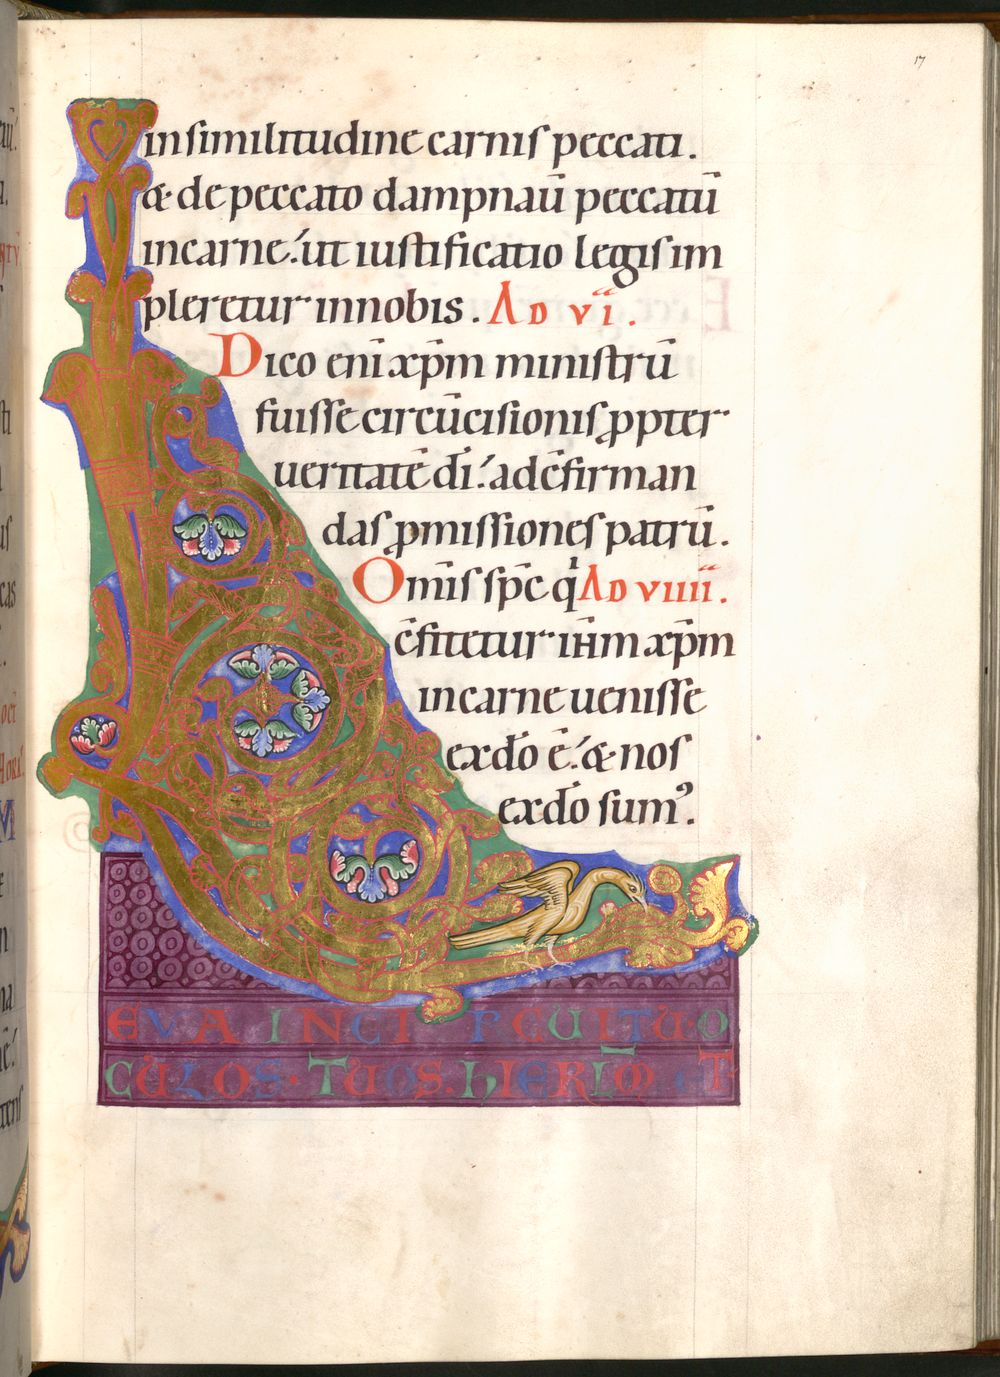 17
in similitudine carnis peccati.
& de peccato dampnaū peccatū
in carne. ut iustificatio legis im
pleretur in nobis. AD VI.
Dico enī xp̄m ministrū
fuisse circūcisionis ꝓpter
ueritatē dī. ad cōfirman
das ꝓmissiones patrū.
Omīs sp̄c q̇ AD VIIII.
cōfitetur iHm xp̄m
in carne uenisse
ex dō ē. & nos
ex dō sumꝰ.
LEVA IN CIRCUITU O
CULOS. TUOS. hIERLM̄ ET